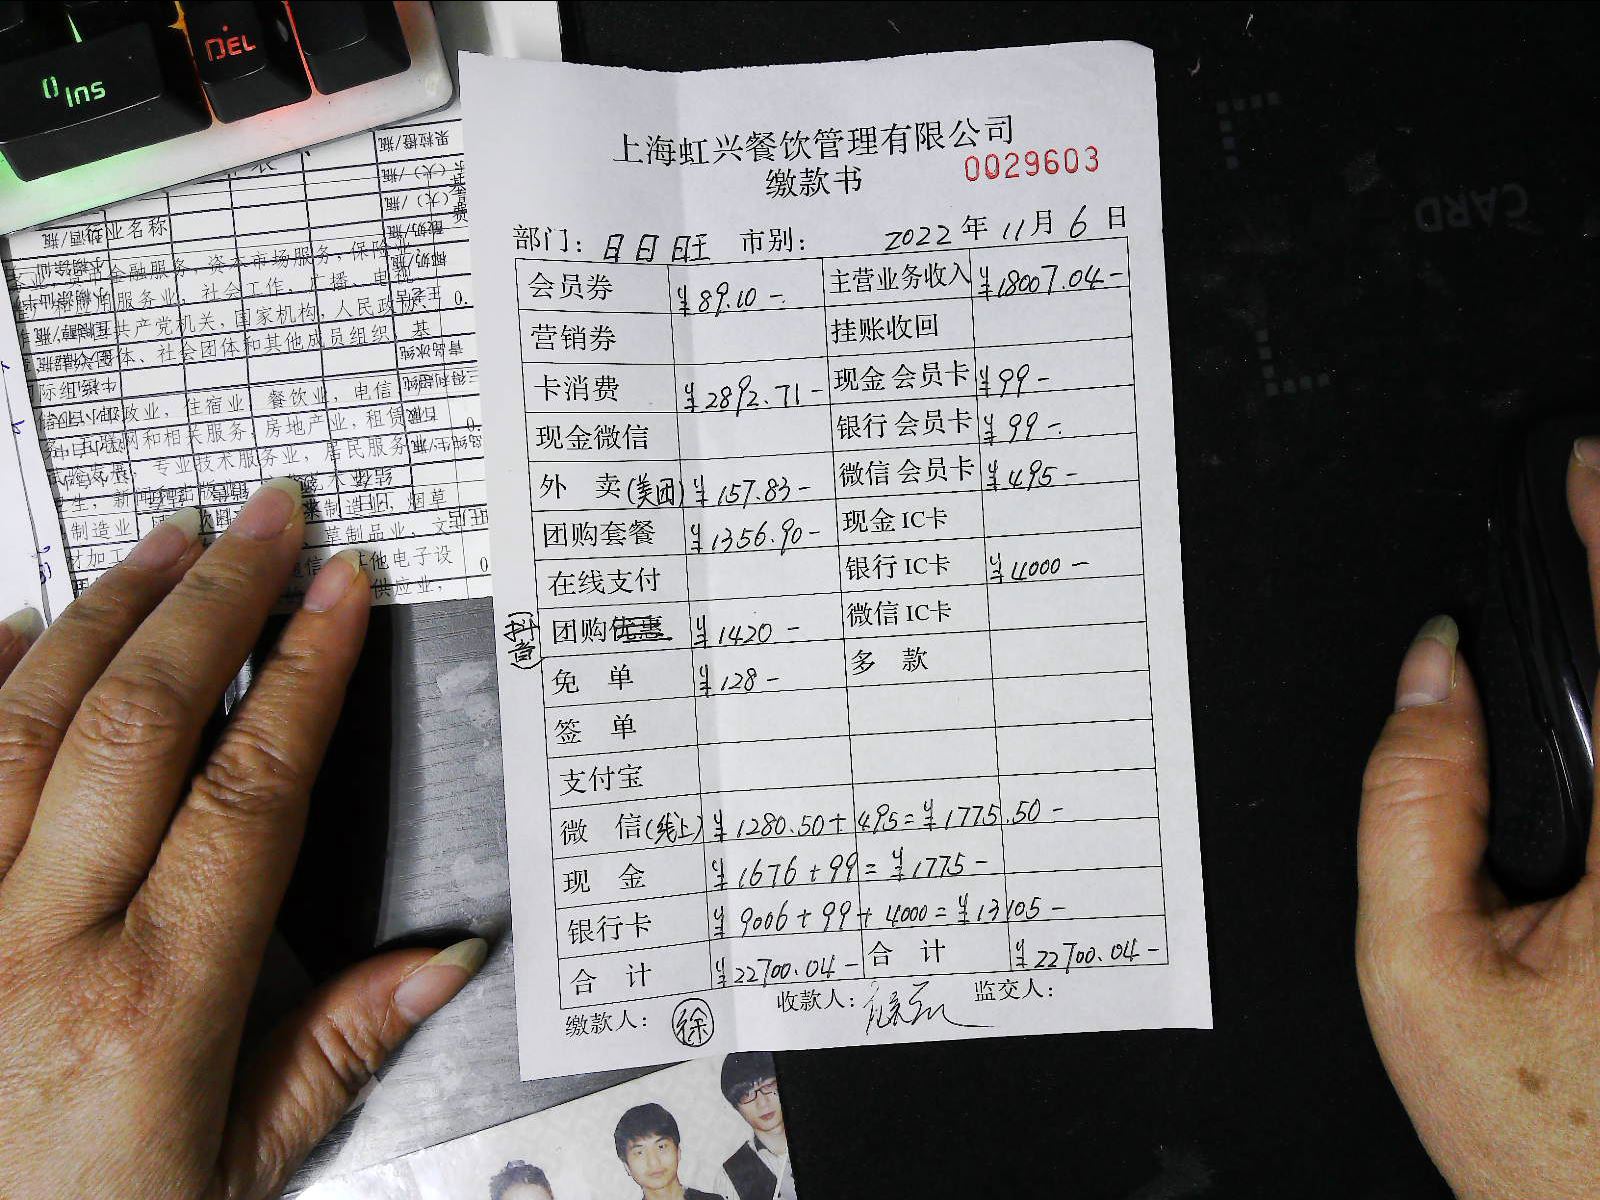 0 Ins
DEL
CARD
上海虹兴餐饮管理有限公司
缴款书
0029603
部门: 日日旺 市别: 2022 年 11 月 6 日
会员券 ¥89.10- 主营业务收入 ¥18007.04-
营销券 挂账收回
卡消费 ¥2892.71- 现金会员卡 ¥99-
现金微信 银行会员卡 ¥99-
外 卖(美团) ¥157.83- 微信会员卡 ¥495-
团购套餐 ¥1356.90- 现金IC卡
在线支付 银行IC卡 ¥4000-
(抖音) 团购优惠 ¥1420- 微信IC卡
免 单 ¥128- 多 款
签 单
支付宝
微 信(线上) ¥1280.50+495=¥1775.50-
现 金 ¥1676+99=¥1775-
银行卡 ¥9006+99+4000=¥13105-
合 计 ¥22700.04- 合 计 ¥22700.04-
缴款人: 徐 收款人: 监交人:
业名称
金融服务, 资本市场服务, 保险业
服务业, 社会工作, 广播、电视
共产党机关, 国家机构, 人民政协
体、社会团体和其他成员组织、基
政业, 住宿业 餐饮业, 电信
网和相关服务, 房地产业, 租赁
专业技术服务业, 居民服务
制造业, 烟草
制造业
草制品业, 文
材加工
其他电子设
供应业,